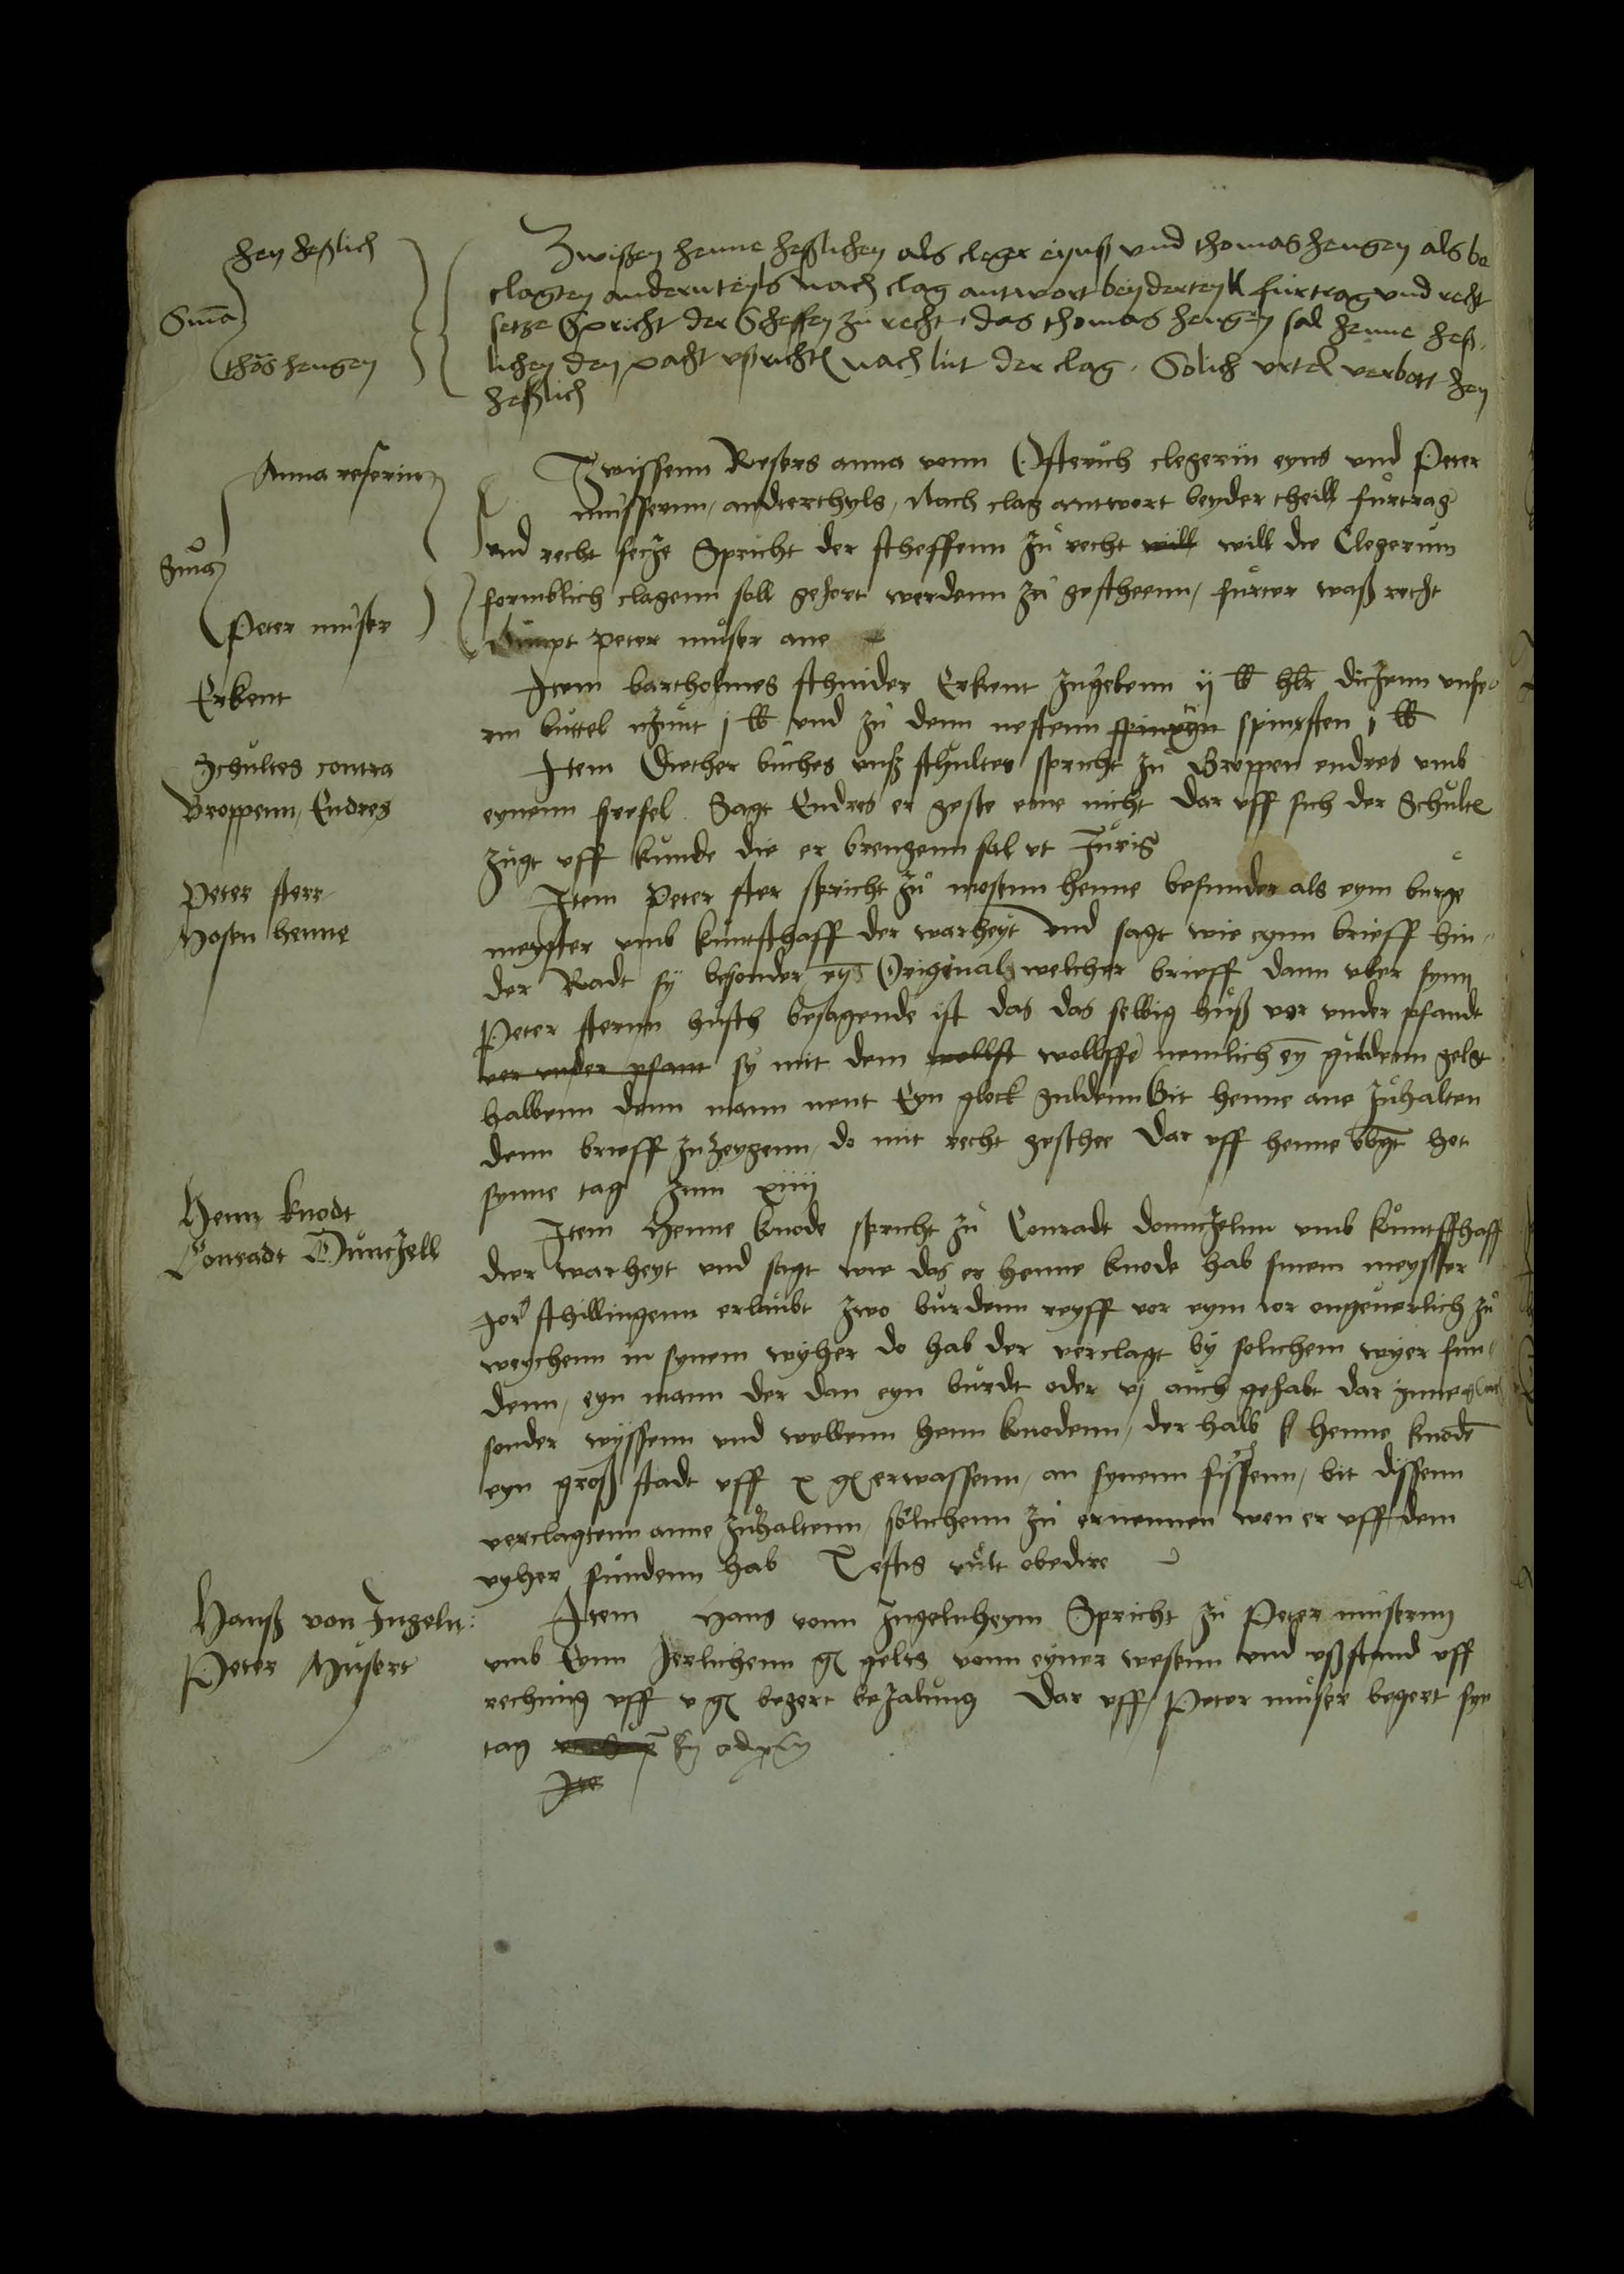 hen heßlich
Sm̄a
thō̄s hengen
Zwißen henne heßlichen als cleger eynß und thomas hengen als be
clagten anderuteyls Nach clag antwort beyderteyl furtrag und recht
setze Spricht der Scheffen zu recht das thomas hengen sal henne heß¬
lichen den pacht ußrichten nach lut der clag. Solich urtel verbott hen
heßlich
Anna reserin
Peter muser
Zwissenn Resers anna vonn Osterich clegerin eyns und Peter
mussernn, anderthyls, Nach clag antwort beyder theill furtrag
und recht secze Spricht der scheffenn zu recht will will die Clegerinn
formblich clagenn soll gehort werdenn zu gescheenn, furter waß recht
peter muser ane
Erkent
Item bartholmes schnider Erkent zugebenn ij lb hlr diczenn unse¬
rm buttel uzunt j lb und zu denn nestenn spingsten j lb
Schultes contra
Broppenn, Endres
Item Diether buches unß schultes spricht zu Broppen endres umb
eynenn frefel. Sagt Endres er geste eme nicht dar uff sich der Schultes
zugt uff kunde die er brengenn sal ut Juris
Peter sterr
Mosen henne
Item Peter ster spricht zu mosenn henne besunder als eym burge
meyster umb kuntschaff der warheyt und sagt wie eynn brieff hin¬
der Radt sy besonder eyn Original welcher brieff dann uber synn
Peter sternn husch besagende ist das das selbig huß vor under pfandt
ver under pfant sy mit dem wollst wollffe nemlich ey guldenn gelgt
halbenn denn mann nent Eyn glock guldenn Bit henne ane zuhalten
denn brieff zu zeygenn, do mit recht geschee Dar uff henne het
synne tag zum xiiij
Henn knodt
Conradt Dunczell
Item Henne knode spricht zu Conradt donnczelnn umb kuntschaff
der warheyt und sagt wie das er henne knode hab sinem meyster
Jor schillingenn erlaubt zwo burdenn reyff vor eym ior ongeuerlich zu
weychenn in synem wyher do hab der verclagt by solichem wyer fun¬
denn, eyn mann der dan eyn burdt oder vj auch gehabt dar ynne
sonder wyssenn und wellenn henn knodenn, der halb henne knode
eyn groß stadt uff x gl erwassenn, an synenn fissenn, bit dissenn
verclagtenn anne zuhaltenn, solichenn zu ernennen wen er uff dem
wyher fundenn hab Testis vult obedire
Hanß von Ingeln:
Peter Musert
Item Hans vonn Ingelnheym Spricht zu Peter musernn
umb Eynn Jerlichenn gl gelts vonn eyner wesenn und ußstand uff
rechnig uff v gl begert bezalung Dar uff, Peter muser begert syn
tag
Ite